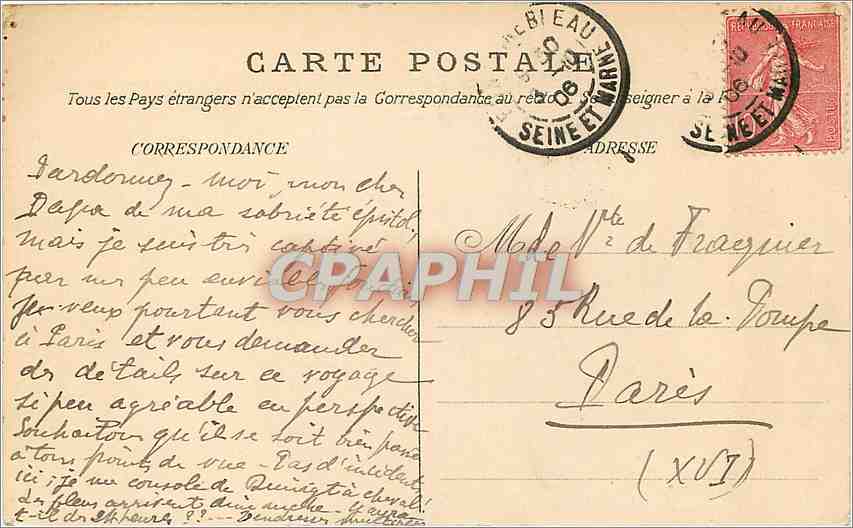 CARTE POSTALE
Tous les Pays étrangers n'acceptent pas la Correspondance au
CORRESPONDANCE
ADRESSE
SEINE ET MARNE
REPUBLIQUE FRANCAISE
Pardonnez-moi, mon cher
Papa de ma sobriété épistol,
mais je suis très captivé
par un peu enviable
Je veux pourtant vous chercher
à Paris et vous demander
des détails sur ce voyage
si peu agréable en perspective
Souhaitons qu'il se soit bien passé
à tous points de vue - Pas d'incident
ici; je me console de
des fleurs arrivent dimanche
t-il des 24 heures ?? ---
de Fraguier
83 Rue de la Pompe
Paris
(XVI)
CPAPHIL